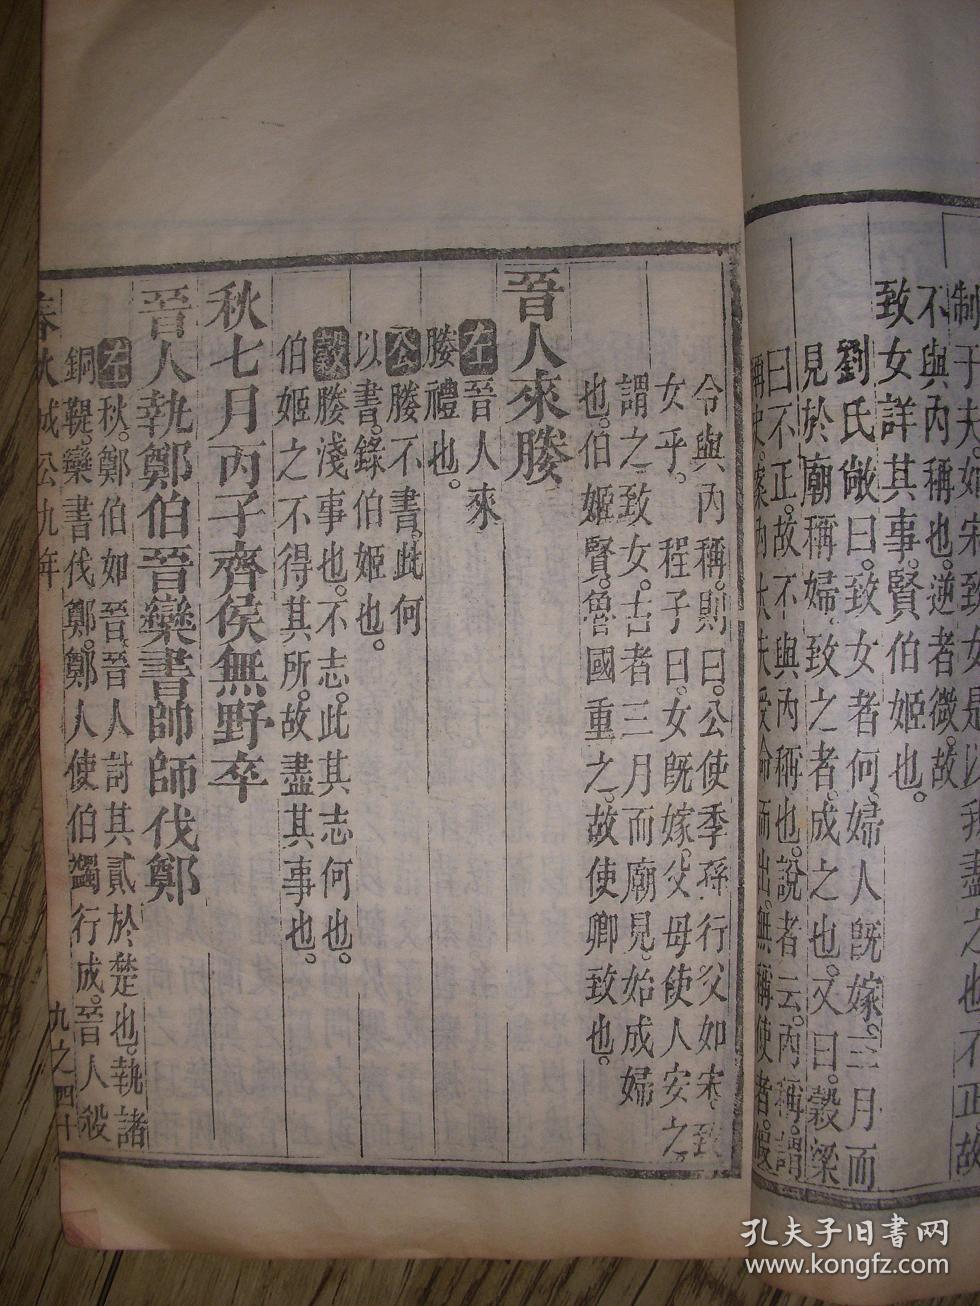 制于夫。婚宋致女是以我盡之也不正。故
不與內稱也。逆者微。故
致女詳其事。賢伯姬也。
劉氏敞曰。致女者何。婦人旣嫁。三月而
見於廟稱婦。致之者。成之也。又曰。穀梁
曰不正。故不與內稱也。說者云。內稱。謂
稱使。案內大夫受命而出。無稱使者。假
令與內稱。則曰。公使季孫行父如宋。致
女乎。 程子曰。女旣嫁。父母使人安之。
謂之致女。古者三月而廟見。始成婦
也。伯姬賢。魯國重之。故使卿致也。
晉人來媵
左晉人來
媵禮也。
公媵不書。此何
以書。錄伯姬也。
穀媵淺事也。不志。此其志何也。
伯姬之不得其所。故盡其事也。
秋七月丙子齊侯無野卒
晉人執鄭伯晉欒書帥師伐鄭
左秋。鄭伯如晉。晉人討其貳於楚也。執諸
銅鞮。欒書伐鄭。鄭人使伯蠲行成。晉人殺
春秋 成公九年 九之四十
孔夫子旧書网
www.kongfz.com